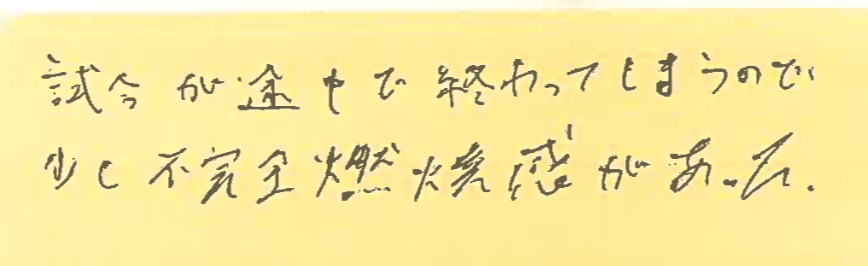 試合が途中で終わってしまうので
少し不完全燃焼感があった.